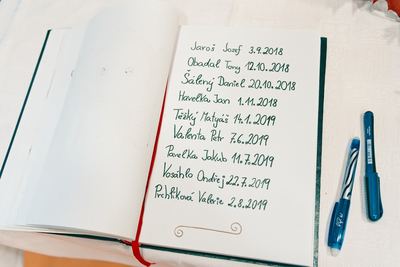 Jaroš Jozef 3.9.2018
Obadal Tony 12.10.2018
Šálený Daniel 20.10.2018
Havelka Jan 1.11.2018
Těšký Matyáš 14.1.2019
Valenta Petr 7.6.2019
Pavelka Jakub 11.7.2019
Vosáhlo Ondřej 22.7.2019
Prchlíková Valerie 2.8.2019